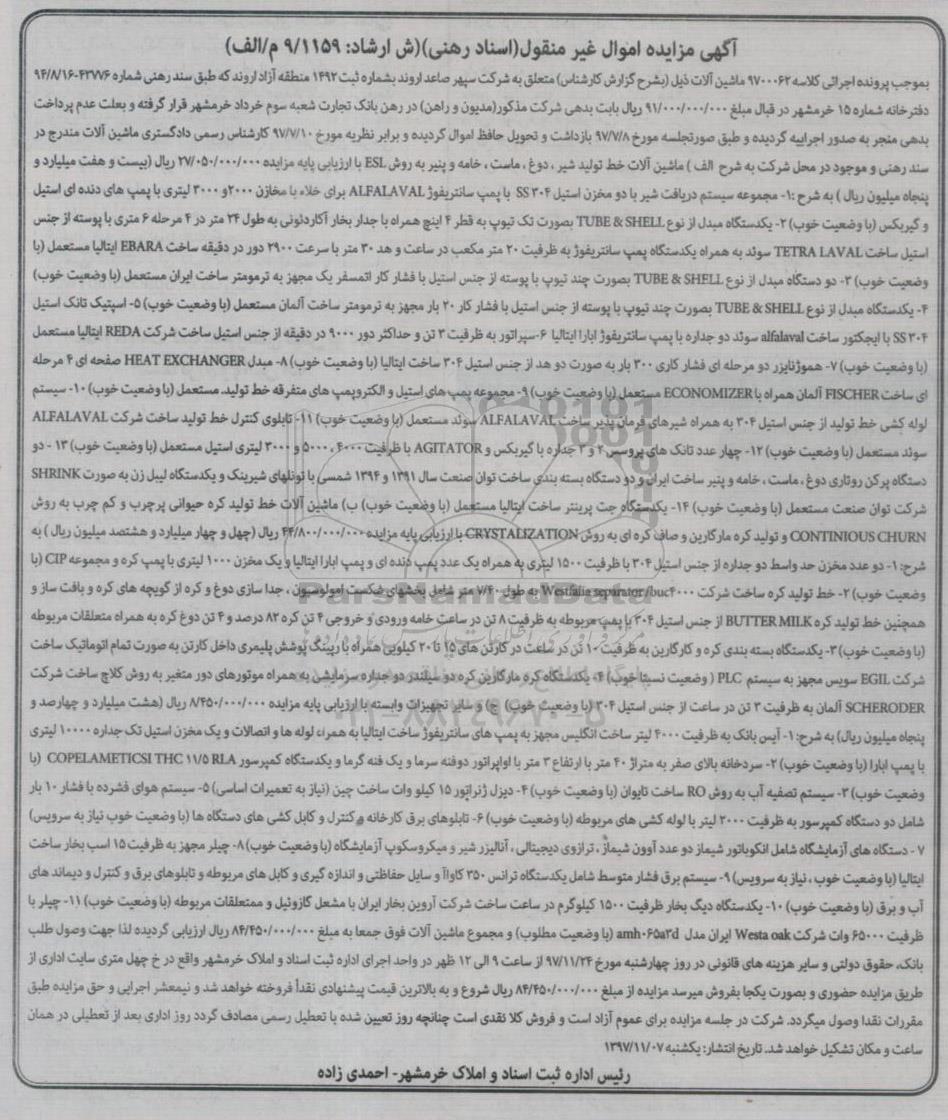 آگهی مزایده اموال غیر منقول(اسناد رهنی)(ش ارشاد: ۹/۱۱۵۹ م/الف)
بموجب پرونده اجرائی کلاسه ۹۷۰۰۰۶۲ ماشین آلات ذیل (بشرح گزارش کارشناس) متعلق به شرکت سپهر صاعد اروند بشماره ثبت ۱۴۹۲ منطقه آزاد اروند که طبق سند رهنی شماره ۴۲۷۷۶-۹۴/۸/۱۶
دفترخانه شماره ۱۵ خرمشهر در قبال مبلغ ۹۱/۰۰۰/۰۰۰/۰۰۰ ریال بابت بدهی شرکت مذکور(مدیون و راهن) در رهن بانک تجارت شعبه سوم خرداد خرمشهر قرار گرفته و بعلت عدم پرداخت
بدهی منجر به صدور اجراییه گردیده و طبق صورتجلسه مورخ ۹۷/۷/۸ بازداشت و تحویل حافظ اموال گردیده و برابر نظریه مورخ ۹۷/۷/۱۰ کارشناس رسمی دادگستری ماشین آلات مندرج در
سند رهنی و موجود در محل شرکت به شرح الف ) ماشین آلات خط تولید شیر ، دوغ ، ماست ، خامه و پنیر به روش ESL با ارزیابی پایه مزایده ۲۷/۰۵۰/۰۰۰/۰۰۰ ریال (بیست و هفت میلیارد و
پنجاه میلیون ریال ) به شرح :۱- مجموعه سیستم دریافت شیر با دو مخزن استیل ۳۰۴ SS با پمپ سانتریفوژ ALFALAVAL برای خلاء با مخازن ۲۰۰۰و ۳۰۰۰ لیتری با پمپ های دنده ای استیل
و گیربکس (با وضعیت خوب) ۲- یکدستگاه مبدل از نوع TUBE & SHELL بصورت تک تیوپ به قطر ۴ اینچ همراه با جدار بخار آکاردئونی به طول ۲۴ متر در ۴ مرحله ۶ متری با پوسته از جنس
استیل ساخت TETRA LAVAL سوئد به همراه یکدستگاه پمپ سانتریفوژ به ظرفیت ۲۰ متر مکعب در ساعت و هد ۳۰ متر با سرعت ۲۹۰۰ دور در دقیقه ساخت EBARA ایتالیا مستعمل (با
وضعیت خوب) ۳- دو دستگاه مبدل از نوع TUBE & SHELL بصورت چند تیوپ با پوسته از جنس استیل با فشار کار اتمسفر یک مجهز به ترمومتر ساخت ایران مستعمل (با وضعیت خوب)
۴- یکدستگاه مبدل از نوع TUBE & SHELL بصورت چند تیوپ با پوسته از جنس استیل با فشار کار ۲۰ بار مجهز به ترمومتر ساخت آلمان مستعمل (با وضعیت خوب) ۵- اسپتیک تانک استیل
SS ۳۰۴ با ایجکتور ساخت alfalaval سوئد دو جداره با پمپ سانتریفوژ ابارا ایتالیا ۶-سپراتور به ظرفیت ۳ تن و حداکثر دور ۹۰۰۰ در دقیقه از جنس استیل ساخت شرکت REDA ایتالیا مستعمل
(با وضعیت خوب) ۷- هموژنایزر دو مرحله ای فشار کاری ۳۰۰ بار به صورت دو هد از جنس استیل ۳۰۴ ساخت ایتالیا (با وضعیت خوب) ۸- مبدل HEAT EXCHANGER صفحه ای ۴ مرحله
ای ساخت FISCHER آلمان همراه با ECONOMIZER مستعمل (با وضعیت خوب) ۹- مجموعه پمپ های استیل و الکتروپمپ های متفرقه خط تولید، مستعمل (با وضعیت خوب) ۱۰- سیستم
لوله کشی خط تولید از جنس استیل ۳۰۴ به همراه شیرهای فرمان پذیر ساخت ALFALAVAL سوئد مستعمل (با وضعیت خوب) ۱۱- تابلوی کنترل خط تولید ساخت شرکت ALFALAVAL
سوئد مستعمل (با وضعیت خوب) ۱۲- چهار عدد تانک های پروسس ۲ و ۳ جداره با گیربکس و AGITATOR با ظرفیت ۴۰۰۰ ، ۵۰۰۰ و ۳۰۰۰ لیتری استیل مستعمل (با وضعیت خوب) ۱۳ - دو
دستگاه پرکن روتاری دوغ ، ماست ، خامه و پنیر ساخت ایران و دو دستگاه بسته بندی ساخت توان صنعت سال ۱۳۹۱ و ۱۳۹۴ شمسی با تونلهای شیرینک و یکدستگاه لیبل زن به صورت SHRINK
شرکت توان صنعت مستعمل (با وضعیت خوب) ۱۴- یکدستگاه جت پرینتر ساخت ایتالیا مستعمل (با وضعیت خوب) ب) ماشین آلات خط تولید کره حیوانی پرچرب و کم چرب به روش
CONTINIOUS CHURN و تولید کره مارگارین و صاف کره ای به روش CRYSTALIZATION با ارزیابی پایه مزایده ۴۴/۸۰۰/۰۰۰/۰۰۰ ریال (چهل و چهار میلیارد و هشتصد میلیون ریال ) به
شرح: ۱- دو عدد مخزن حد واسط دو جداره از جنس استیل ۳۰۴ با ظرفیت ۱۵۰۰ لیتری به همراه یک عدد پمپ دنده ای و پمپ ابارا ایتالیا و یک مخزن ۱۰۰۰ لیتری با پمپ کره و مجموعه CIP (با
وضعیت خوب) ۲- خط تولید کره ساخت شرکت Westfalia separator /buc۴۰۰۰ به طول ۷/۴۰ متر شامل بخشهای شکست امولوسیون ، جدا سازی دوغ و کره از گویچه های کره و بافت ساز و
همچنین خط تولید کره BUTTER MILK از جنس استیل ۳۰۴ با پمپ مربوطه به ظرفیت ۸ تن در ساعت خامه ورودی و خروجی ۴ تن کره ۸۲ درصد و ۴ تن دوغ کره به همراه متعلقات مربوطه
(با وضعیت خوب) ۳- یکدستگاه بسته بندی کره و کارگارین به ظرفیت ۱۰ تن در ساعت در کارتن های ۱۵ تا ۲۰ کیلویی همراه با رپینگ پوشش پلیمری داخل کارتن به صورت تمام اتوماتیک ساخت
شرکت EGIL سویس مجهز به سیستم PLC ( وضعیت نسبتا خوب) ۴- یکدستگاه کره مارگارین کره دو سیلندر دو جداره سرمایشی به همراه موتورهای دور متغیر به روش کلاچ ساخت شرکت
SCHERODER آلمان به ظرفیت ۳ تن در ساعت از جنس استیل ۳۰۴ (با وضعیت خوب) ج) و سایر تجهیزات وابسته با ارزیابی پایه مزایده ۸/۴۵۰/۰۰۰/۰۰۰ ریال (هشت میلیارد و چهارصد و
پنجاه میلیون ریال) به شرح: ۱- آیس بانک به ظرفیت ۴۰۰۰ لیتر ساخت انگلیس مجهز به پمپ های سانتریفوژ ساخت ایتالیا به همراه لوله ها و اتصالات و یک مخزن استیل تک جداره ۱۰۰۰۰ لیتری
با پمپ ابارا (با وضعیت خوب) ۲- سردخانه بالای صفر به متراژ ۴۰ متر با ارتفاع ۳ متر با اواپراتور دوفنه سرما و یک فنه گرما و یکدستگاه کمپرسور COPELAMETICSI THC ۱۱/۵ RLA (با
وضعیت خوب) ۳- سیستم تصفیه آب به روش RO ساخت تایوان (با وضعیت خوب) ۴- دیزل ژنراتور ۱۵ کیلو وات ساخت چین (نیاز به تعمیرات اساسی) ۵- سیستم هوای فشرده با فشار ۱۰ بار
شامل دو دستگاه کمپرسور به ظرفیت ۲۰۰۰ لیتر با لوله کشی های مربوطه (با وضعیت خوب) ۶- تابلوهای برق کارخانه و کنترل و کابل کشی های دستگاه ها (با وضعیت خوب نیاز به سرویس)
۷ - دستگاه های آزمایشگاه شامل انکوباتور شیماز دو عدد آوون شیماز ، ترازوی دیجیتالی ، آنالیزر شیر و میکروسکوپ آزمایشگاه (با وضعیت خوب) ۸- چیلر مجهز به ظرفیت ۱۵ اسب بخار ساخت
ایتالیا (با وضعیت خوب ، نیاز به سرویس) ۹- سیستم برق فشار متوسط شامل یکدستگاه ترانس ۳۵۰ کاوآا و سایل حفاظتی و اندازه گیری و کابل های مربوطه و تابلوهای برق و کنترل و دیماند های
آب و برق (با وضعیت خوب) ۱۰- یکدستگاه دیگ بخار ظرفیت ۱۵۰۰ کیلوگرم در ساعت ساخت شرکت آروین بخار ایران با مشعل گازوئیل و ممتعلقات مربوطه (با وضعیت خوب) ۱۱- چیلر با
ظرفیت ۶۵۰۰۰ وات شرکت Westa oak ایران مدل amh۰۶۵a۳d (با وضعیت مطلوب) و مجموع ماشین آلات فوق جمعا به مبلغ ۸۴/۴۵۰/۰۰۰/۰۰۰ ریال ارزیابی گردیده لذا جهت وصول طلب
بانک، حقوق دولتی و سایر هزینه های قانونی در روز چهارشنبه مورخ ۹۷/۱۱/۲۴ از ساعت ۹ الی ۱۲ ظهر در واحد اجرای اداره ثبت اسناد و املاک خرمشهر واقع در خ چهل متری سایت اداری از
طریق مزایده حضوری و بصورت یکجا بفروش میرسد مزایده از مبلغ ۸۴/۴۵۰/۰۰۰/۰۰۰ ریال شروع و به بالاترین قیمت پیشنهادی نقدأ فروخته خواهد شد و نیمعشر اجرایی و حق مزایده طبق
مقررات نقدا وصول میگردد. شرکت در جلسه مزایده برای عموم آزاد است و فروش کلا نقدی است چنانچه روز تعیین شده با تعطیل رسمی مصادف گردد روز اداری بعد از تعطیلی در همان
ساعت و مکان تشکیل خواهد شد. تاریخ انتشار: یکشنبه ۱۳۹۷/۱۱/۰۷
رئیس اداره ثبت اسناد و املاک خرمشهر- احمدی زاده
ParsNamadData
۰۲۱-۸۸۳۴۹۶۷۰-۵